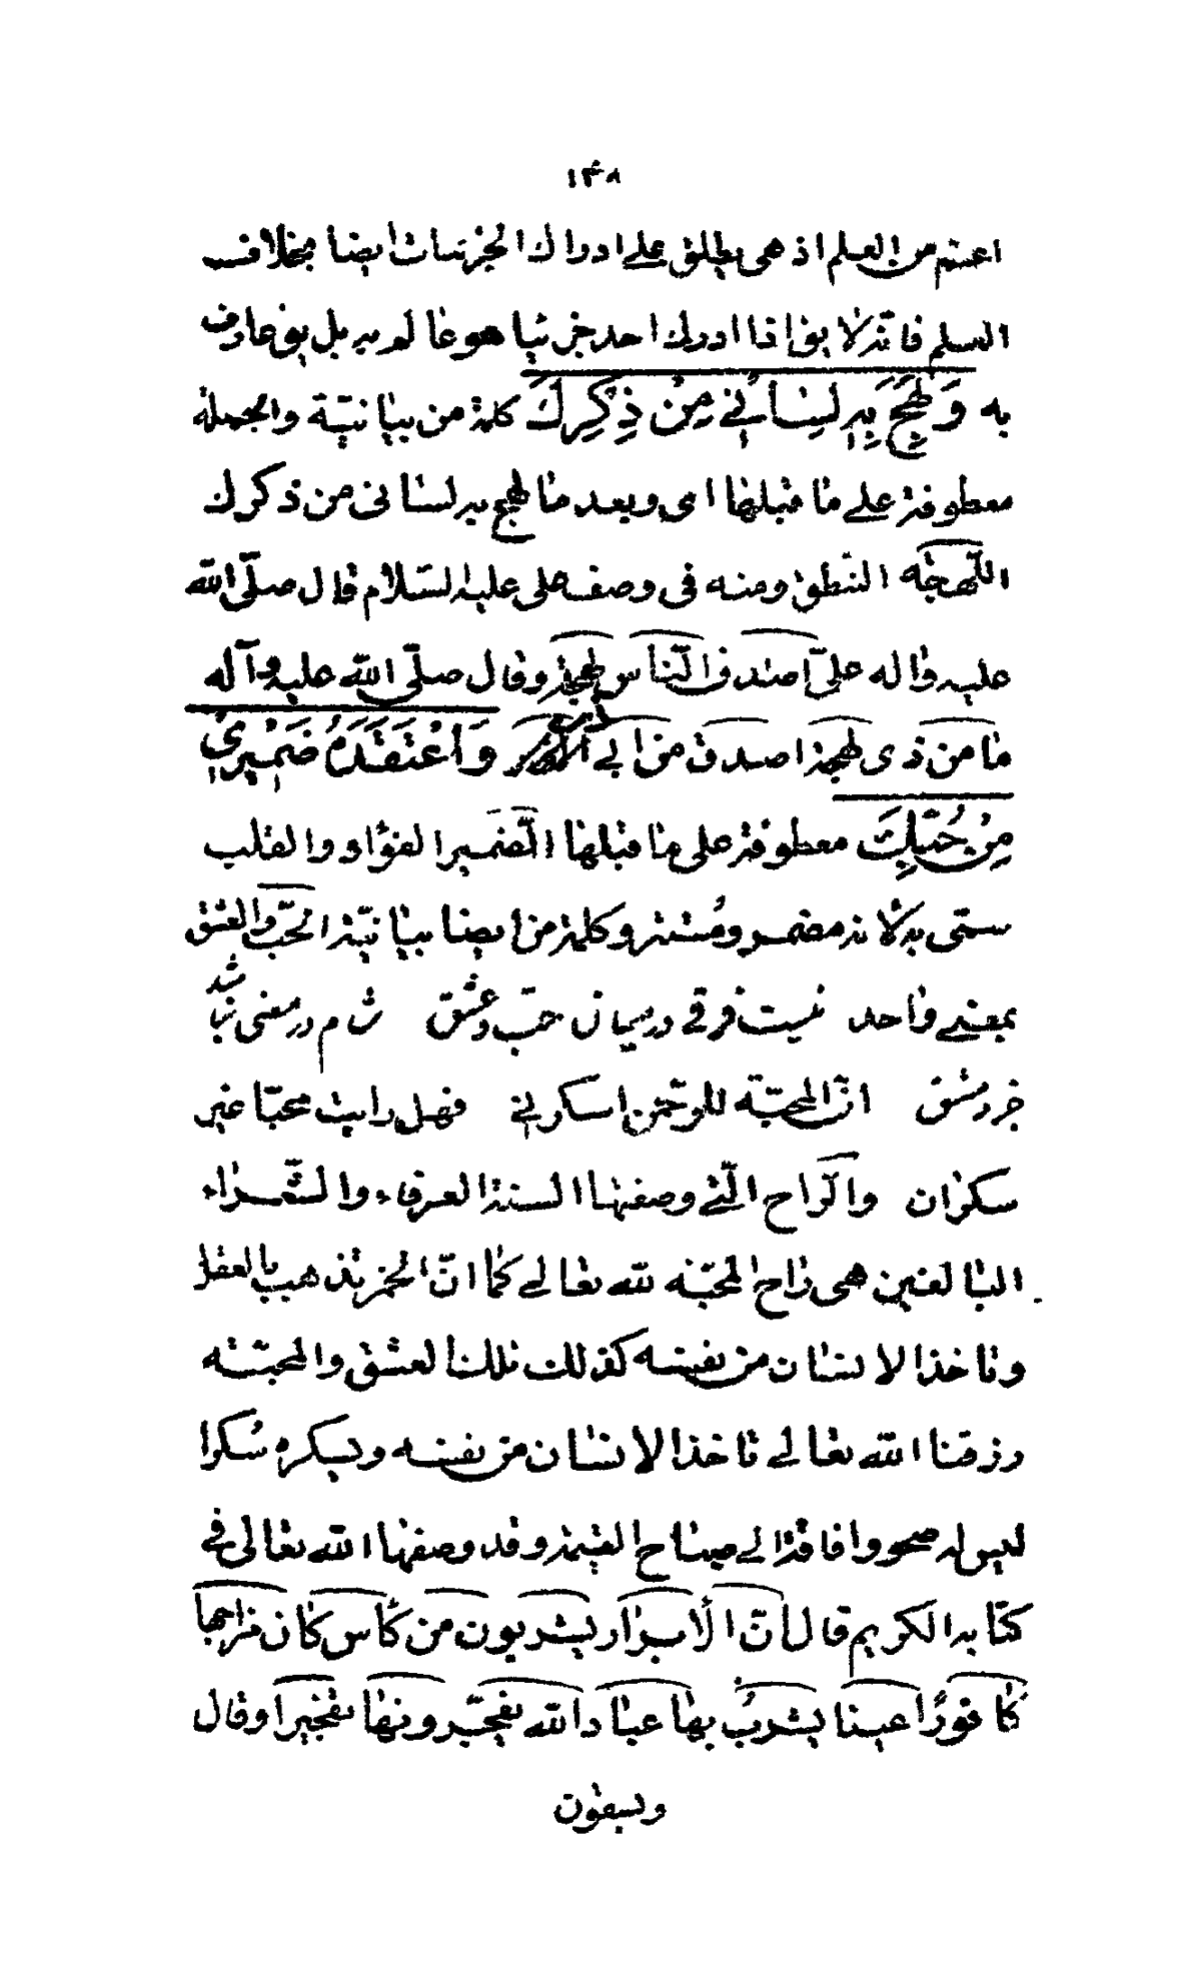 ۱۴۸
اعتم من العلم اذ هى يطلق على ادراك الجزئيات ايضا بخلاف
العلم فانه لا يق اذا ادرك احد جزئيا هو عالم به بل يق عارف
به وَلَهِجَ بِهِ لِسٰانِي مِنْ ذِكْرِكَ كلمة من بيانيّة والجملة
معطوفة على ما قبلها اى وبعد ما لهج به لسانى من ذكرك
اللّهجة النّطق ومنه فى وصف على عليه السّلام قال صلّى الله
عليه واله علىّ اصدق النّاس لهجة وقال صلّى الله عليه وآله
ما من ذى لهجة اصدق من ابي ذر وَاعْتَقَدَهُ ضَمٖيرِي
مِنْ حُبِّكَ معطوفة على ما قبلها الضّمير الفؤاد والقلب
سمّى به لانه مضمر ومستتر وكلمة من ايضا بيانيّة الحبّ والعشق
بمعنى واحد نيست فرقى در ميان حبّ وعشق شام در معنى نباشد
جز دمشق انّ المحبّة للرحمن اسكرني فهل رايت محبّا غير
سكران والرّاح الّتى وصفها السنة العرفاء والشّعراء
البالغين هى راح المحبّة لله تعالى كما انّ الخمر يذهب بالعقل
وتاخذ الانسان من نفسه كذلك تلك العشق والمحبّة
رزقنا الله تعالى تاخذ الانسان من نفسه ويسكره سُكرا
ليس له صحو وافاقة الى صباح القيمة وقد وصفها الله تعالى في
كتابه الكريم قال انّ الأبرار يشربون من كأس كان مزاجها
كافورًا عينا يشربُ بها عباد الله يفجّرونها تفجيرا وقال
ويسقون